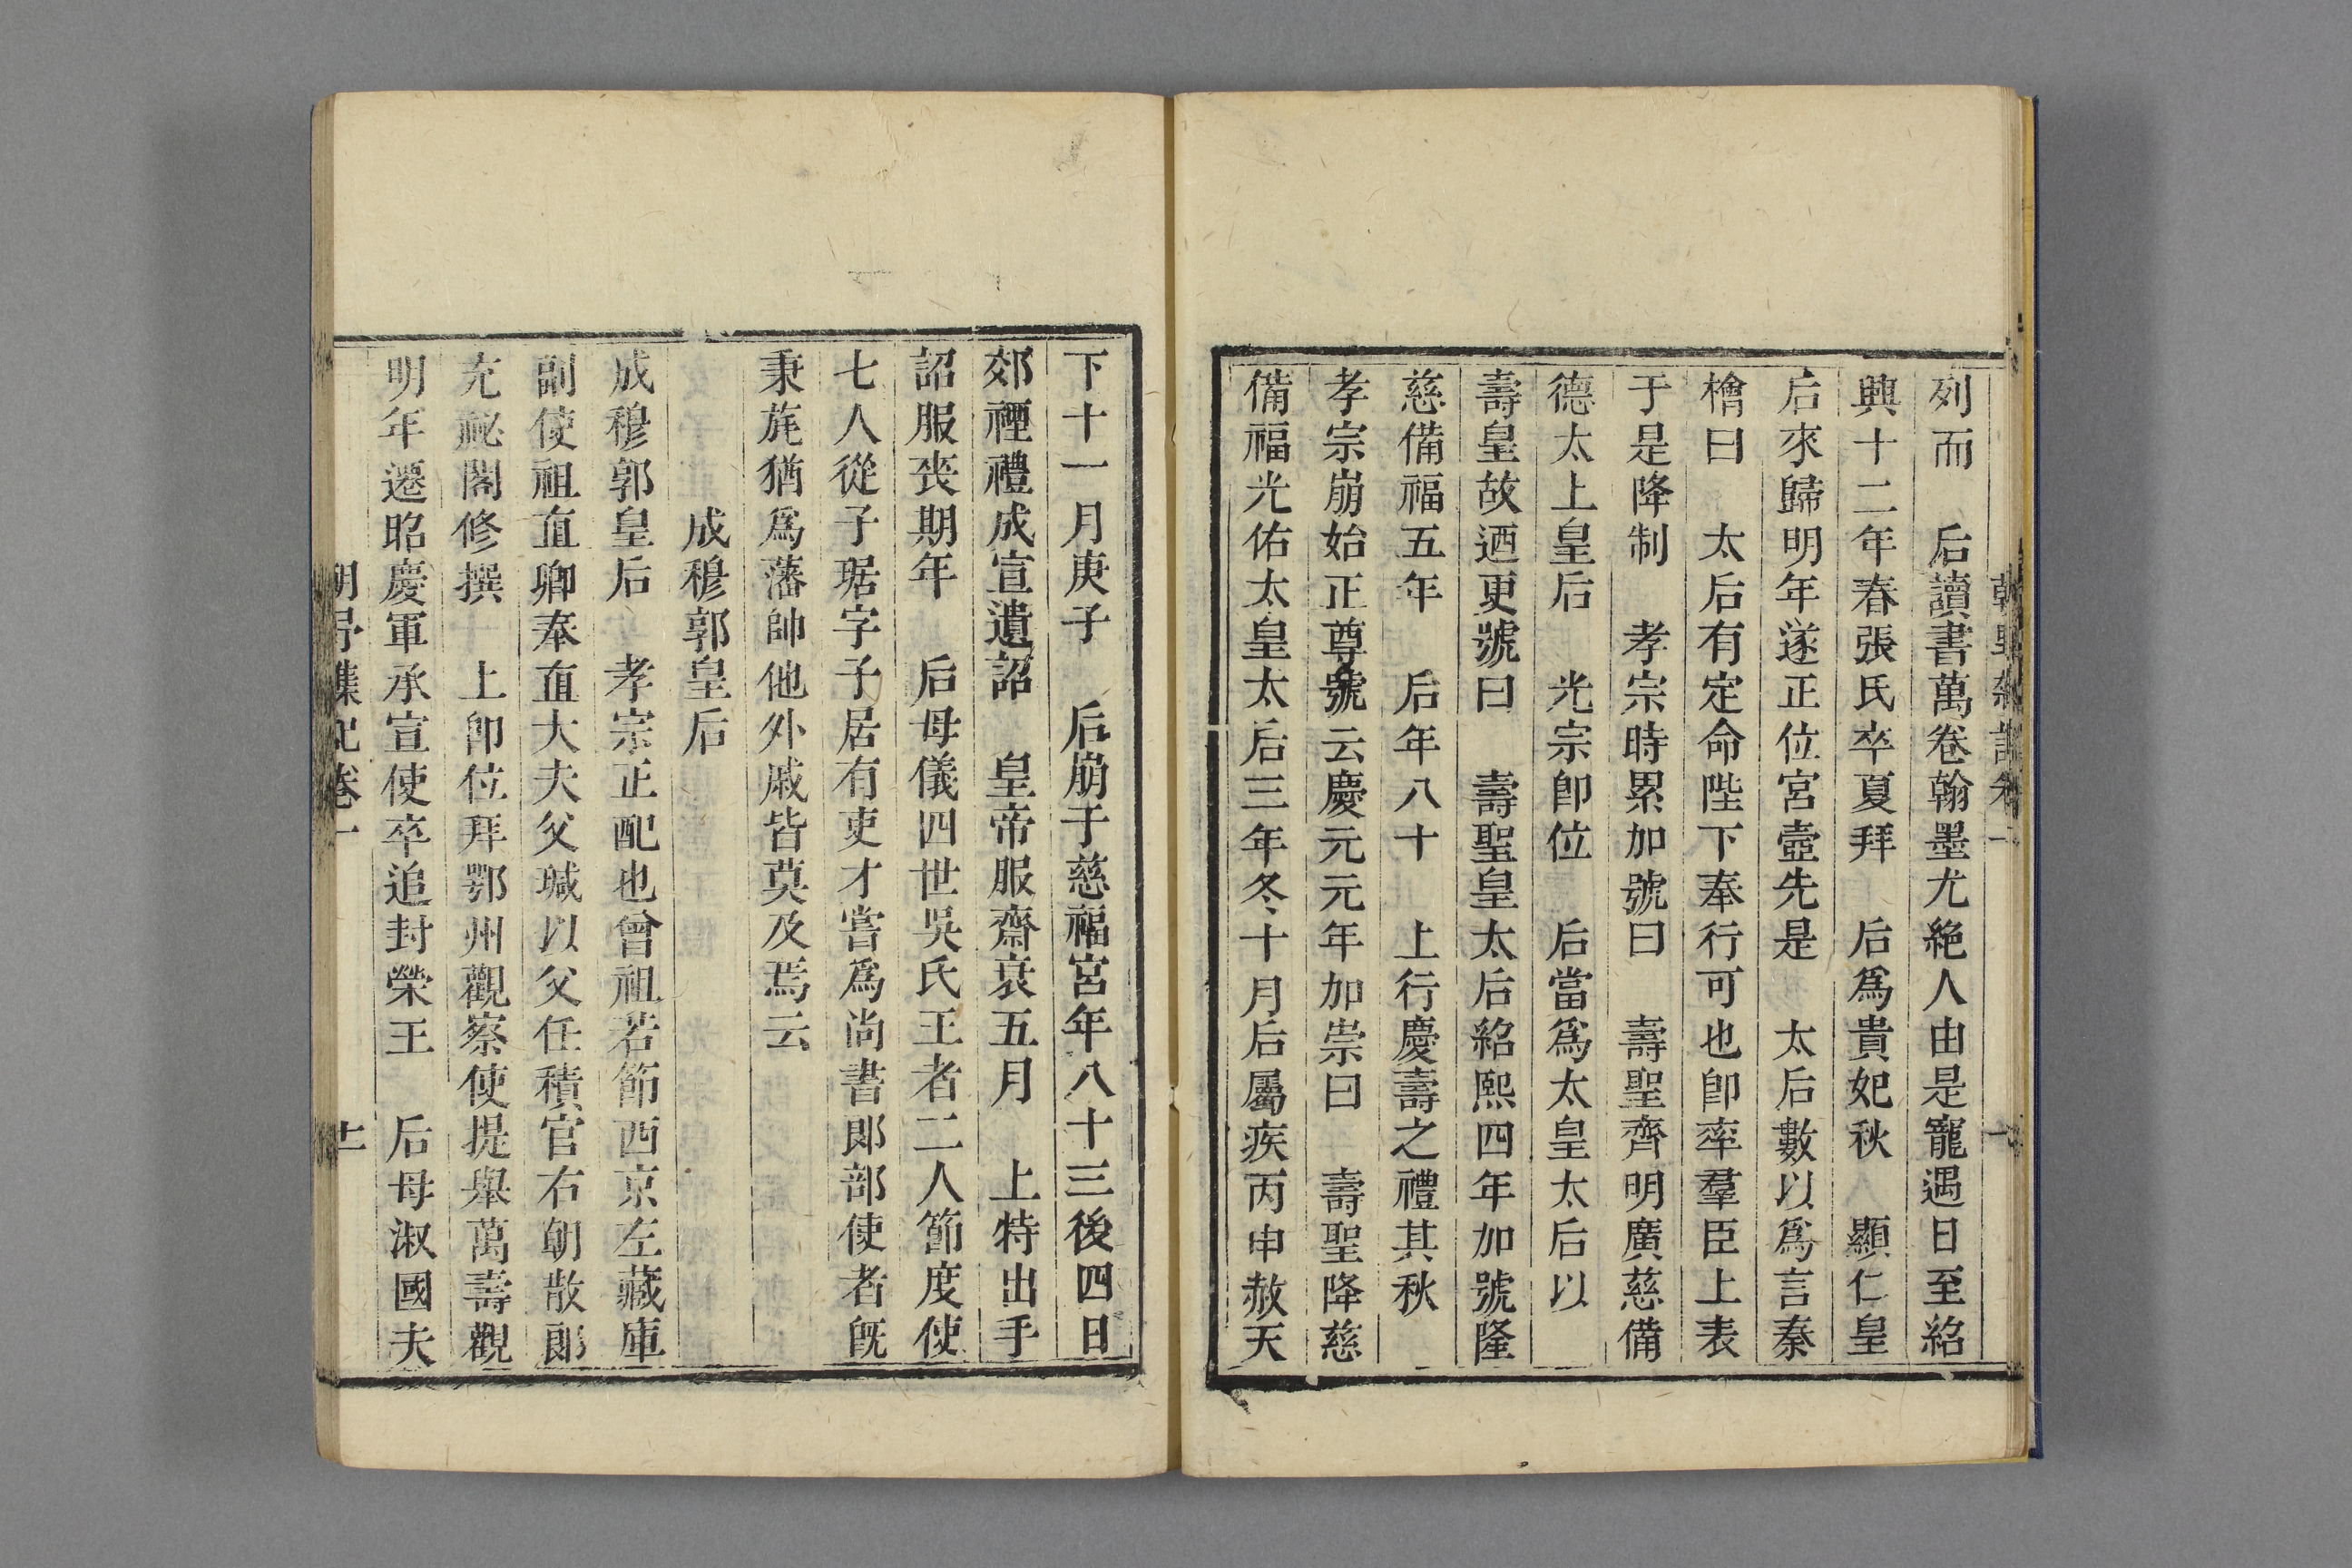 列而　后讀書萬卷翰墨尤絶人由是寵遇日至紹
興十二年春張氏卒夏拜　后爲貴妃秋　顯仁皇
后來歸明年遂正位宮壼先是　太后數以爲言秦
檜曰　太后有定命陛下奉行可也卽率羣臣上表
于是降制　孝宗時累加號曰　壽聖齊明廣慈備
德太上皇后　光宗卽位　后當爲太皇太后以
壽皇故迺更號曰　壽聖皇太后紹熙四年加號隆
慈備福五年　后年八十　上行慶壽之禮其秋
孝宗崩始正尊號云慶元元年加崇曰　壽聖隆慈
備福光佑太皇太后三年冬十月后屬疾丙申赦天
下十一月庚子　后崩于慈福宮年八十三後四日
郊禋禮成宣遺詔　皇帝服齋衰五月　上特出手
詔服丧期年　后母儀四世吳氏王者二人節度使
七人從子琚字子居有吏才嘗爲尚書郎部使者旣
秉旄猶爲藩帥他外戚皆莫及焉云
成穆郭皇后
成穆郭皇后　孝宗正配也曾祖若節西京左藏庫
副使祖直卿奉直大夫父瑊以父任積官右朝散郎
充祕閣修撰　上卽位拜鄂州觀察使提舉萬壽觀
明年遷昭慶軍承宣使卒追封榮王　后母淑國夫